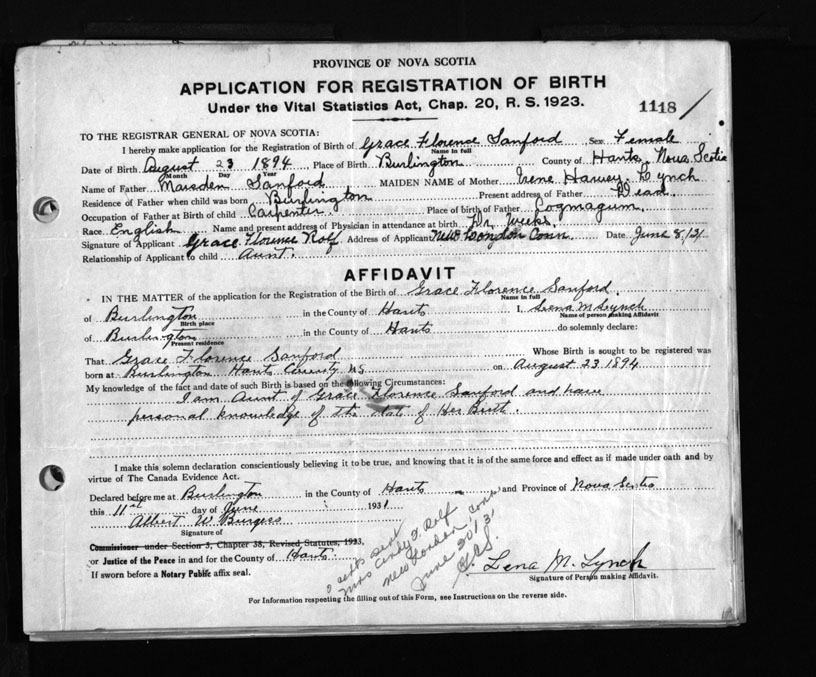 PROVINCE OF NOVA SCOTIA
APPLICATION FOR REGISTRATION OF BIRTH
Under the Vital Statistics Act, Chap. 20, R. S. 1923.
1118
TO THE REGISTRAR GENERAL OF NOVA SCOTIA:
I hereby make application for the Registration of Birth of Grace Florence Sanford Sex Female
Name in full
Date of Birth August 23 1894 Place of Birth Burlington County of Hants, Nova Scotia
Month Day Year
Name of Father Marsden Sanford MAIDEN NAME of Mother Irene Harvey Lynch
Residence of Father when child was born Burlington Present address of Father Dead.
Occupation of Father at Birth of child Carpenter. Place of birth of Father
Race English Name and present address of Physician in attendance at birth Dr. Weeks.
Signature of Applicant Grace Florence Rolf Address of Applicant New London Conn. Date June 8/31
Relationship of Applicant to child Aunt.
AFFIDAVIT
IN THE MATTER of the application for the Registration of the Birth of Grace Florence Sanford.
Name in full
of Burlington in the County of Hants I, Lena M Lynch
Birth place Name of person making Affidavit
of Burlington in the County of Hants do solemnly declare:
Present residence
That Grace Florence Sanford Whose Birth is sought to be registered was
born at Burlington Hants County NS on August 23 1894
My knowledge of the fact and date of such Birth is based on the following Circumstances:
I am Aunt of Grace Florence Sanford and have
personal knowledge of the date of Her Birth.
I make this solemn declaration conscientiously believing it to be true, and knowing that it is of the same force and effect as if made under oath and by
virtue of The Canada Evidence Act.
Declared before me at Burlington in the County of Hants and Province of Nova Scotia
this 11th day of June 1931
Albert W Burgess
Signature of
Commissioner under Section 3, Chapter 38, Revised Statutes, 1923,
or Justice of the Peace in and for the County of Hants.
If sworn before a Notary Public affix seal.
sent
Mrs F. Rolf
New London Conn
June 20/31
Lena M. Lynch
Signature of Person making Affidavit.
For Information respecting the filling out of this Form, see Instructions on the reverse side.